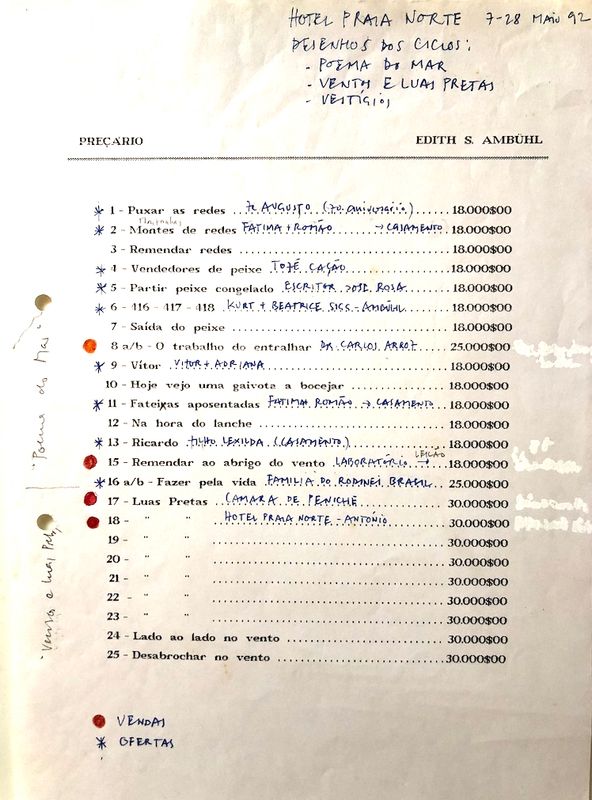 HOTEL PRAIA NORTE 7-28 MAIO 92
DESENHOS DOS CICLOS:
- POEMA DO MAR
- VENTOS E LUAS PRETAS
- VESTÍGIOS
PREÇÁRIO EDITH S. AMBÜHL
* 1 - Puxar as redes ... AUGUSTO (70. aniversário) ... 18.000$00
* 2 - Montes de redes FATIMA + ROMÃO → CASAMENTO ... 18.000$00
3 - Remendar redes ... 18.000$00
* 4 - Vendedores de peixe TOZÉ CAÇÃO ... 18.000$00
* 5 - Partir peixe congelado ESCRITOR JOSÉ ROSA ... 18.000$00
* 6 - 416 - 417 - 418 KURT + BEATRICE SIGG-AMBÜHL ... 18.000$00
7 - Saída do peixe ... 18.000$00
8 a/b - O trabalho do entralhar DR CARLOS ... 25.000$00
* 9 - Vítor VITOR + ADRIANA ... 18.000$00
10 - Hoje vejo uma gaivota a bocejar ... 18.000$00
* 11 - Fateixas aposentadas FATIMA ROMÃO → CASAMENTO ... 18.000$00
12 - Na hora do lanche ... 18.000$00
* 13 - Ricardo FILHO LEXILDA (CASAMENTO) ... 18.000$00
LEILÃO
15 - Remendar ao abrigo do vento LABORATÓRIO → 18.000$00
* 16 a/b - Fazer pela vida FAMILIA DO RODINEI BRASIL ... 25.000$00
17 - Luas Pretas CÂMARA DE PENICHE ... 30.000$00
18 - " " HOTEL PRAIA NORTE - ANTÓNIO ... 30.000$00
19 - " " ... 30.000$00
20 - " " ... 30.000$00
21 - " " ... 30.000$00
22 - " " ... 30.000$00
23 - " " ... 30.000$00
24 - Lado ao lado no vento ... 30.000$00
25 - Desabrochar no vento ... 30.000$00
"Poema do Mar"
"Ventos e Luas Pretas"
VENDAS
* OFERTAS